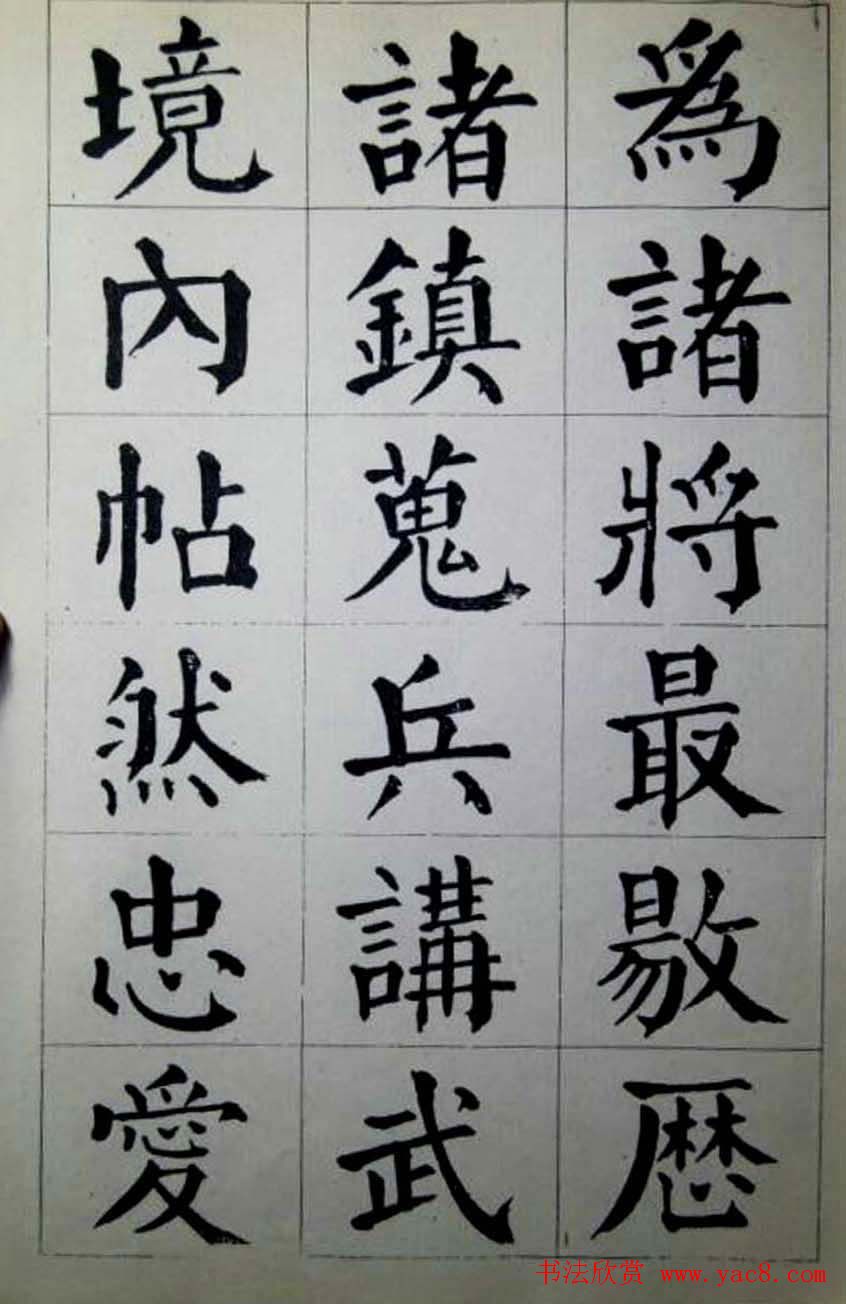 爲諸將最敭歷
諸鎮蒐兵講武
境內帖然忠愛
书法欣赏 www.yac8.com